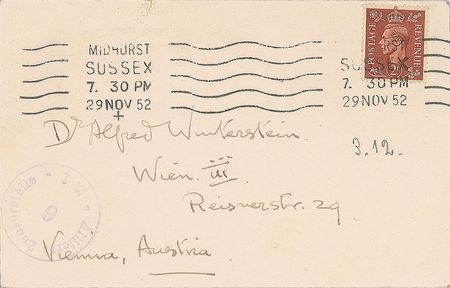 MIDHURST
SUSSEX
7. 30 PM
29 NOV 52
POSTAGE
REVENUE
SUSSEX
7. 30 PM
29 NOV 52
Dr Alfred Winterstein.
3.12.
Wien. III
Reisnerstr. 29.
Zensurstelle
6
Vienna, Austria